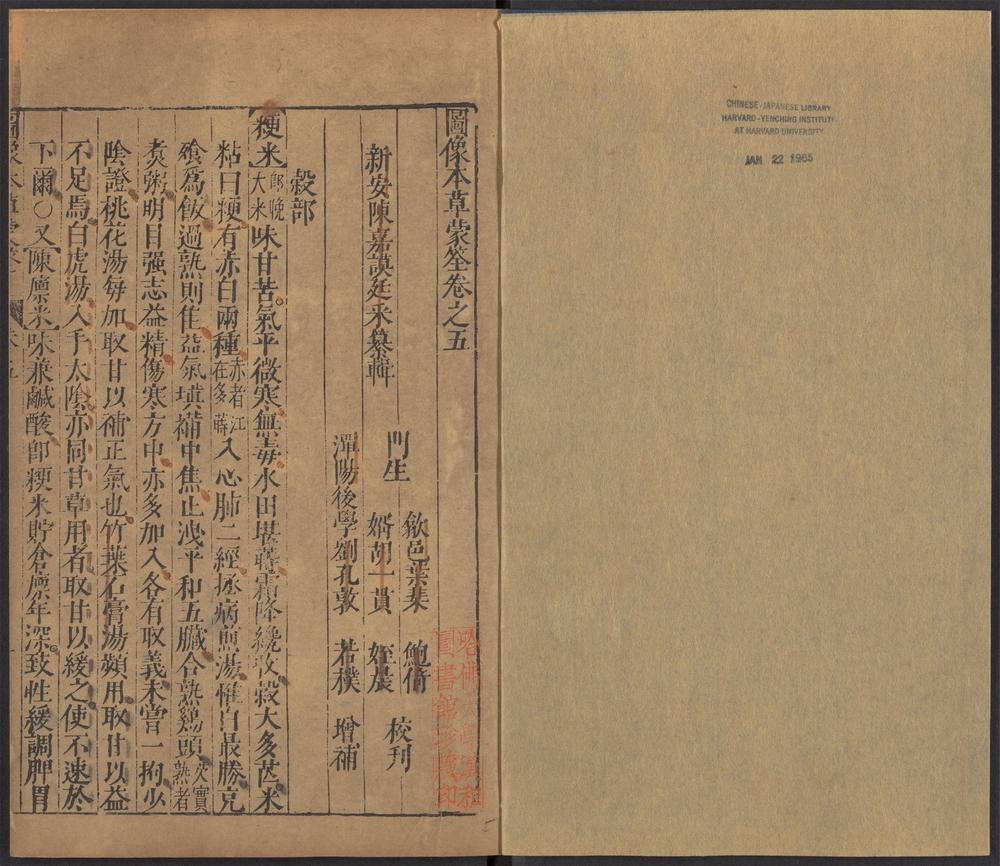 CHINESE-JAPANESE LIBRARY
HARVARD-YENCHING INSTITUTE
AT HARVARD UNIVERSITY
JAN 22 1965
圖像本草蒙筌卷之五
新安陳嘉謨廷采纂輯
門生
歙邑葉棐 鮑倚
婿胡一貫 姪晨
校刊
潭陽後學劉孔敦 若樸 增補
穀部
粳米
即晚
大米
味甘苦氣平微寒無毒水田堪蒔霜降纔收穀大多芒米
粘曰粳有赤白兩種
赤者江
在多蒔
入心肺二經拯病煎湯惟白最勝克
飱為飯過熟則佳益氣塡補中焦止洩平和五臟合熟鷄頭
熟者
煑粥明目强志益精傷寒方中亦多加入各有取義未嘗一拘少
陰證桃花湯每加取甘以補正氣也竹葉石膏湯頻用取甘以益
不足焉白虎湯入手太陰亦同甘草用者取甘以緩之使不速於
下爾○又陳廩米味兼鹹酸卽粳米貯倉廩年深致性緩調脾胃